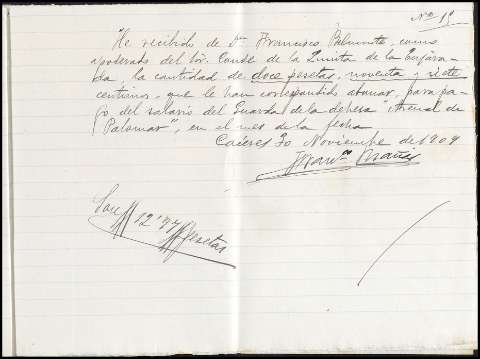 Nº 11
He recibido de Dn Francisco , como
apoderado del Sr. Conde de la Quinta de la Enjara-
da, la cantidad de doce pesetas, noventa y siete
centimos, que le han correspondido abonar, para pa-
go del salario del Guarda de la dehesa "Arenal de
Palomar", en el mes de la fecha
Cáceres 30 Noviembre de 1909
Son 12'97 pesetas